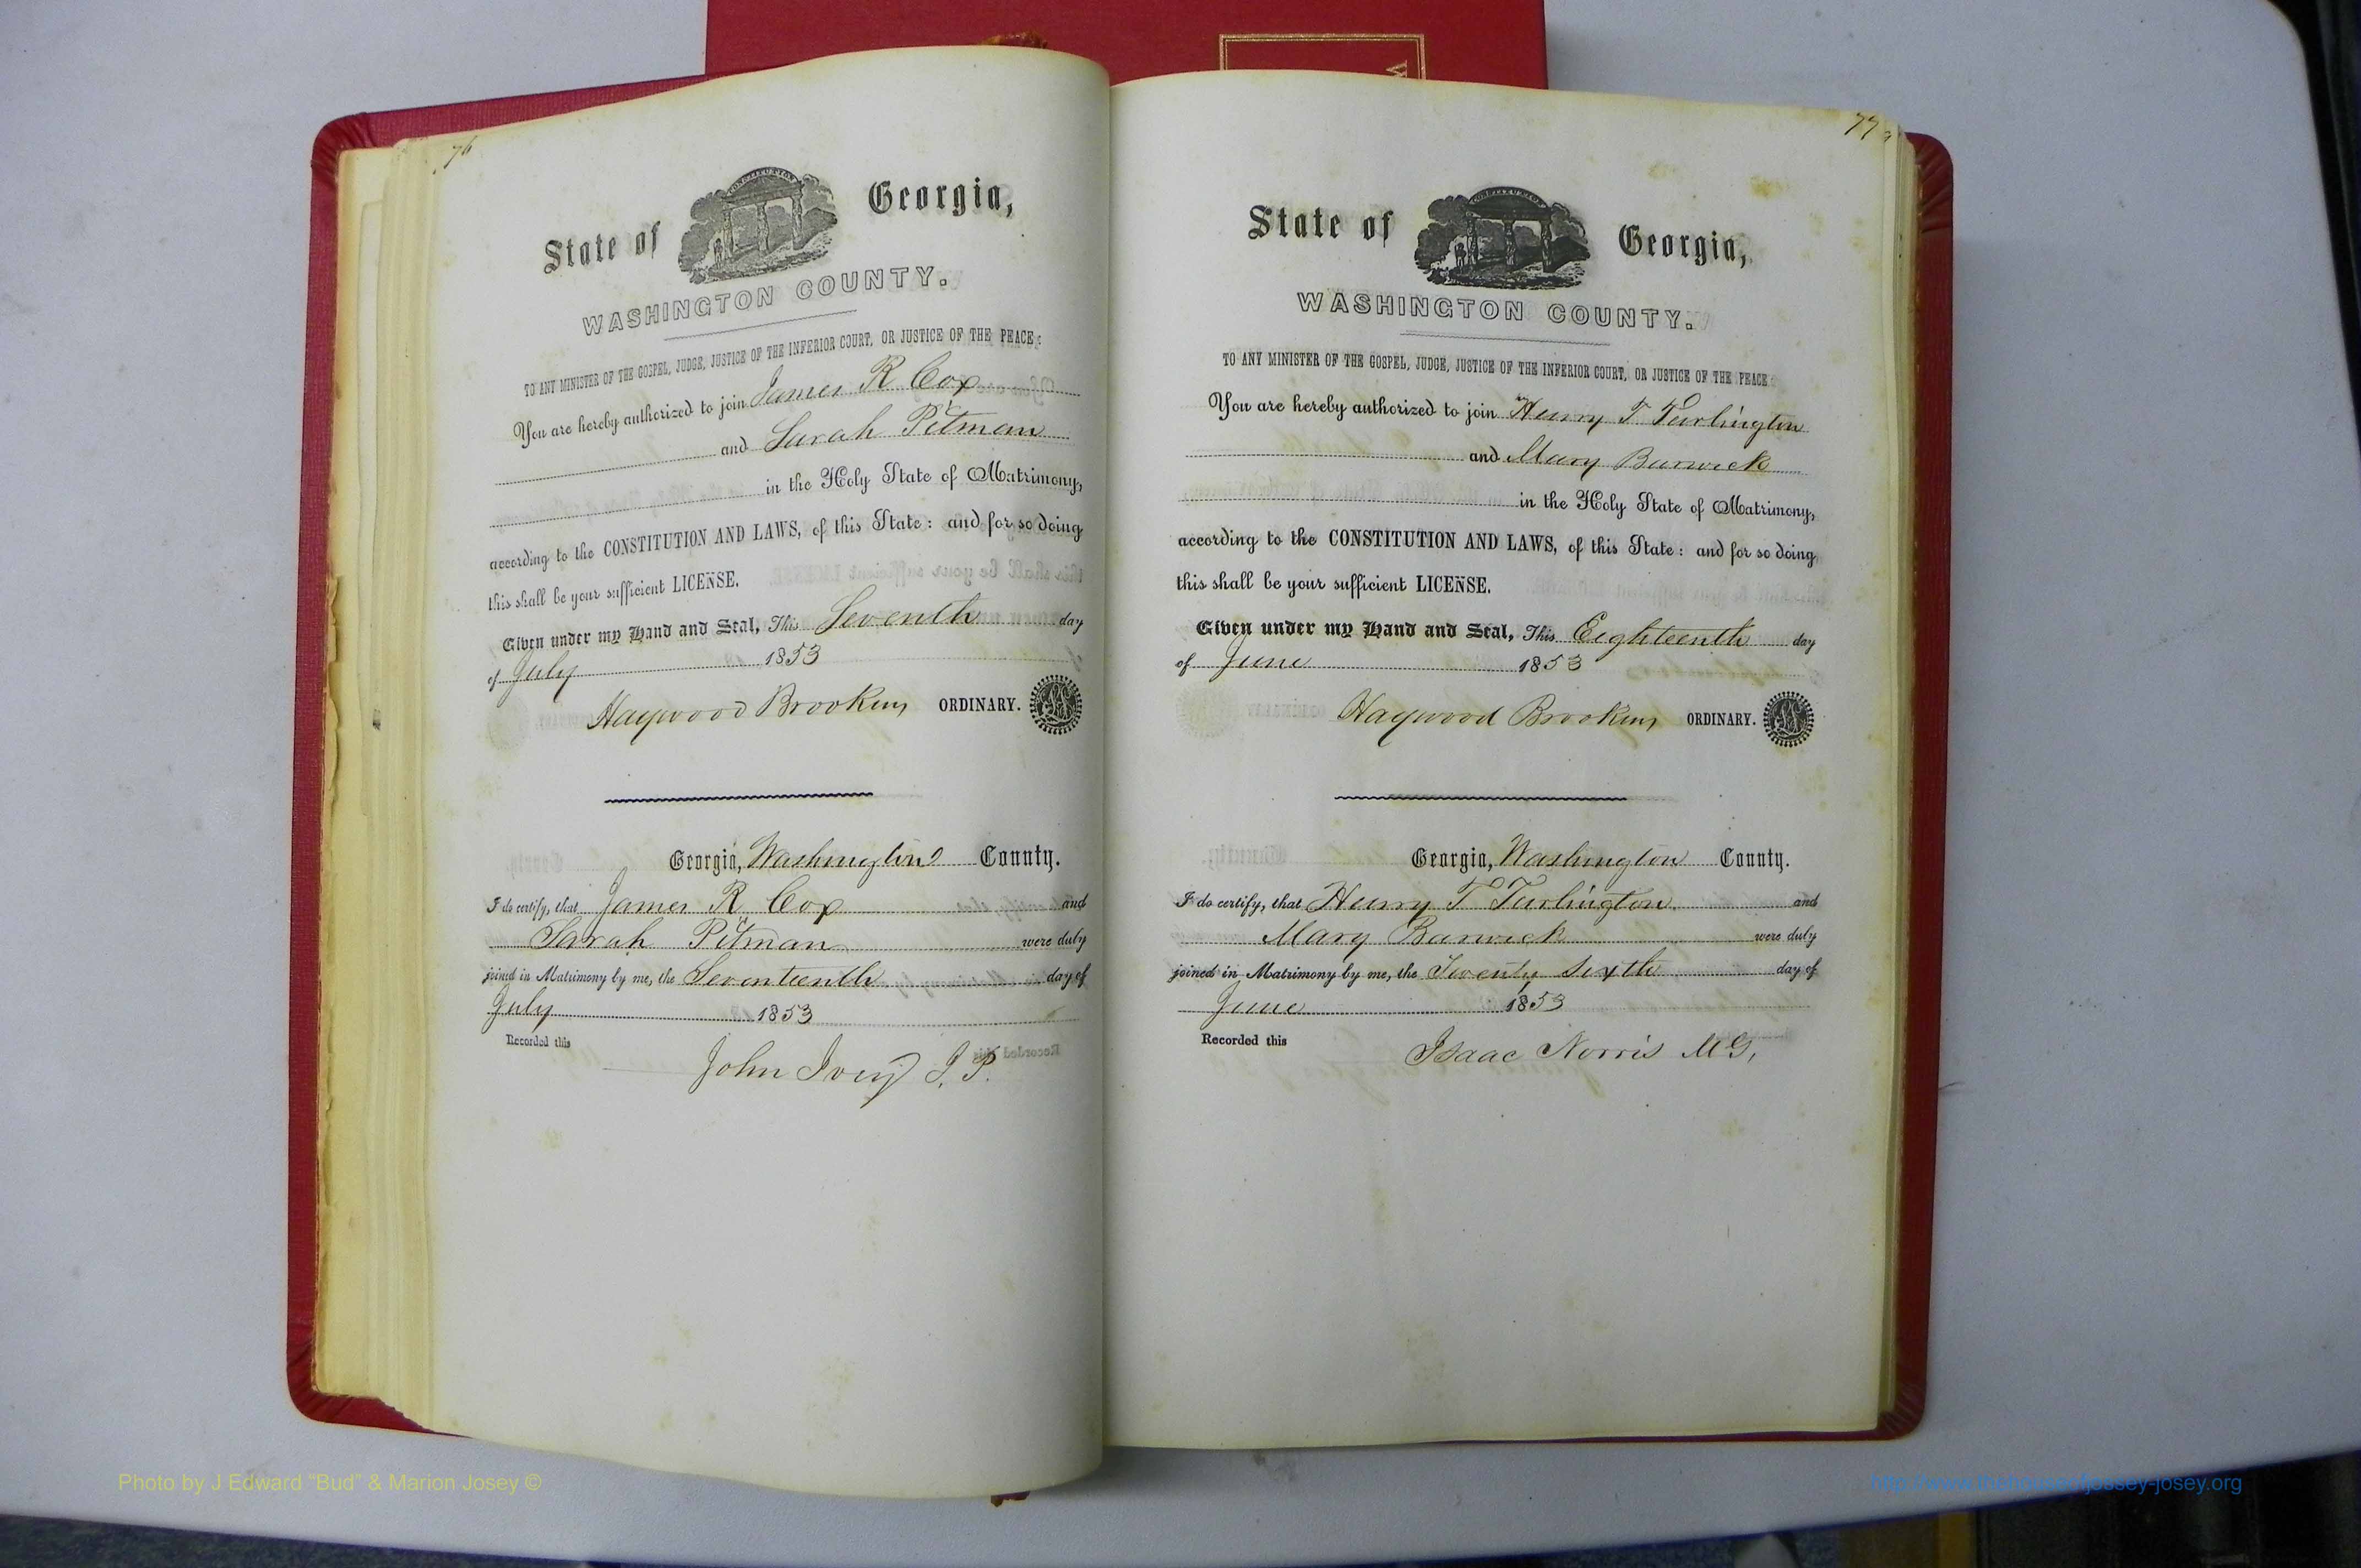 76
CONSTITUTION
State of Georgia,
WASHINGTON COUNTY.
TO ANY MINISTER OF THE GOSPEL, JUDGE, JUSTICE OF THE INFERIOR COURT, OR JUSTICE OF THE PEACE:
You are hereby authorized to join James R Cox
and Sarah Pitman
in the Holy State of Matrimony,
according to the CONSTITUTION AND LAWS, of this State: and for so doing
this shall be your sufficient LICENSE.
Given under my Hand and Seal, This Seventh day
of July 1853
Haywood Brookins ORDINARY.
Georgia, Washington County.
I do certify, that James R Cox and
Sarah Pitman were duly
joined in Matrimony by me, the Seventeenth day of
July 1853
Recorded this
John Ivey J. P.
77
CONSTITUTION
State of Georgia,
WASHINGTON COUNTY.
TO ANY MINISTER OF THE GOSPEL, JUDGE, JUSTICE OF THE INFERIOR COURT, OR JUSTICE OF THE PEACE:
You are hereby authorized to join Henry T Turlington
and Mary Barwick
in the Holy State of Matrimony,
according to the CONSTITUTION AND LAWS, of this State: and for so doing
this shall be your sufficient LICENSE.
Given under my Hand and Seal, This Eighteenth day
of June 1853
Haywood Brookins ORDINARY.
Georgia, Washington County.
I do certify, that Henry T Turlington and
Mary Barwick were duly
joined in Matrimony by me, the Twenty Sixth day of
June 1853
Recorded this
Isaac Norris MG,
Photo by J Edward “Bud” & Marion Josey ©
http://www.thehouseofjossey-josey.org